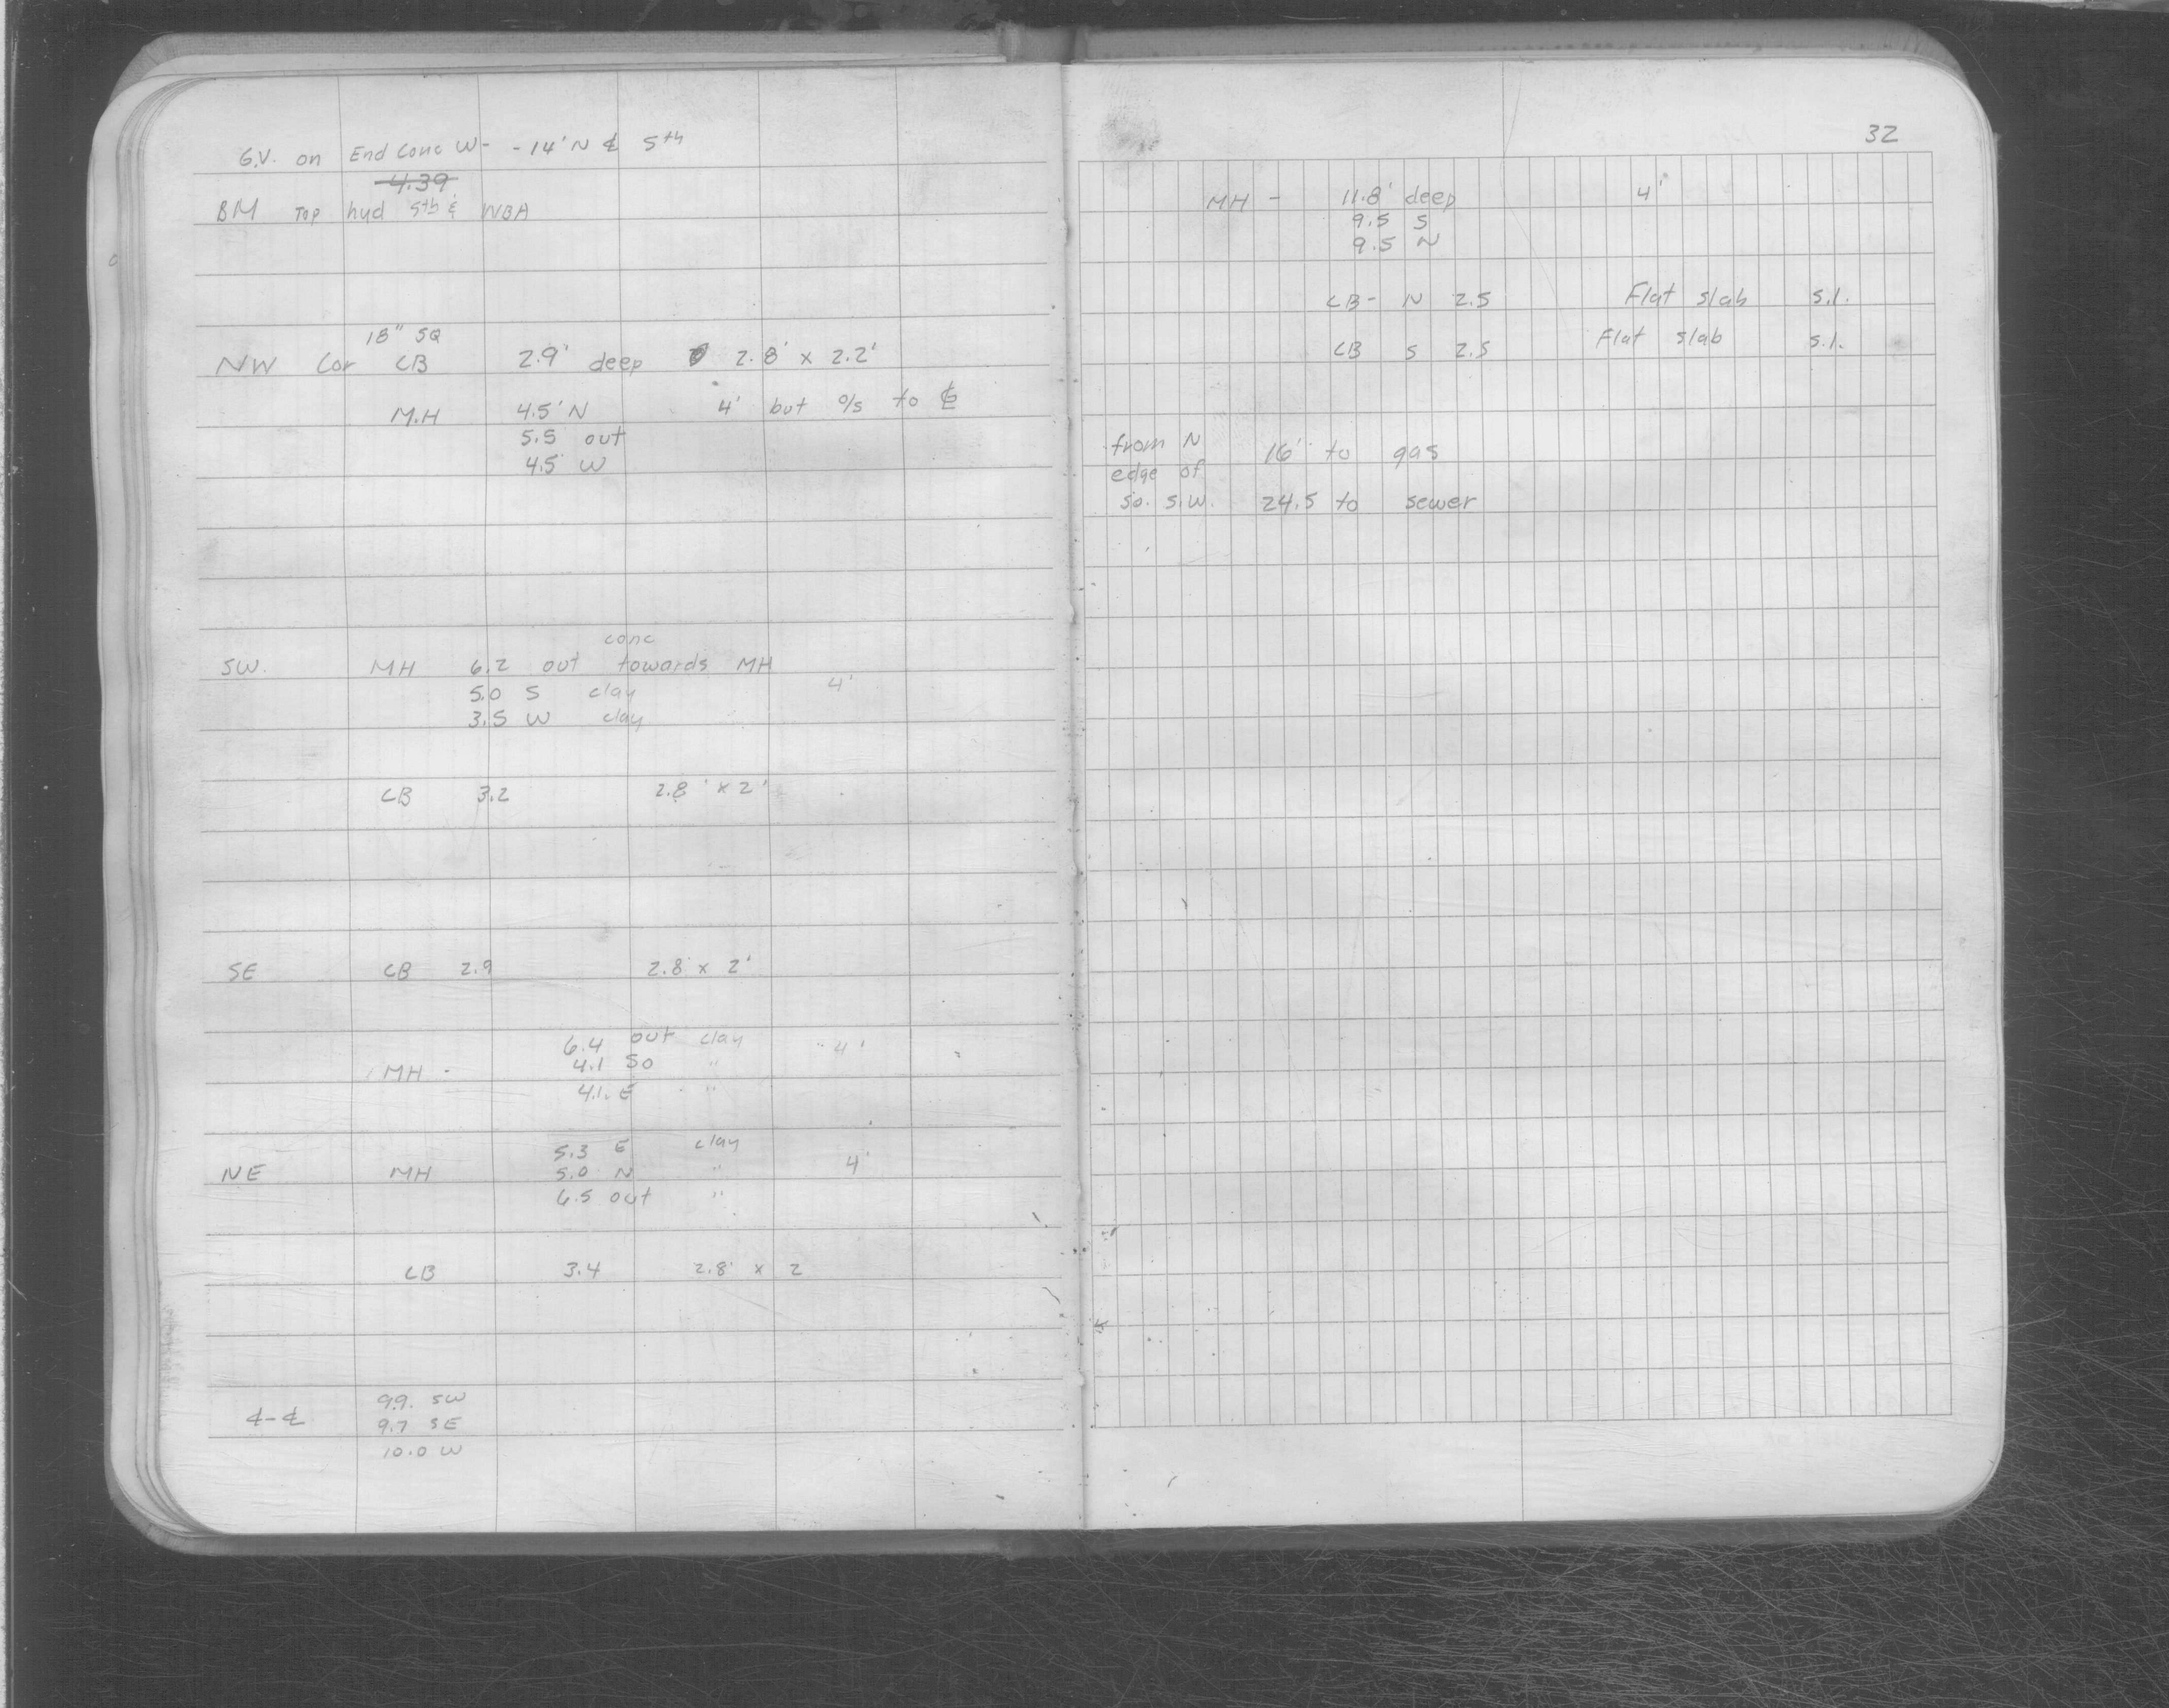 G.V. on End Conc W- -14' N ℄ 5th
4.39
BM Top hyd 5th & WBA
18" SQ
NW Cor CB 2.9' deep 2.8' x 2.2'
M.H 4.5' N 4' but o/s to ℄
5.5 out
4.5 W
conc
SW. MH 6.2 out towards MH
5.0 S clay 4'
3.5 W clay
CB 3.2 2.8' x 2'
SE CB 2.9 2.8' x 2'
6.4 out clay 4'
MH - 4.1 So "
4.1. E "
5.3 E clay
NE MH 5.0 N " 4'
6.5 out "
CB 3.4 2.8' x 2
9.9. SW
℄-℄ 9.7 SE
10.0 W
32
MH - 11.8' deep 4'
9.5 S
9.5 N
CB- N 2.5 Flat slab s.l.
CB S 2.5 Flat slab s.l.
from N 16' to gas
edge of
So. S.W. 24.5 to sewer